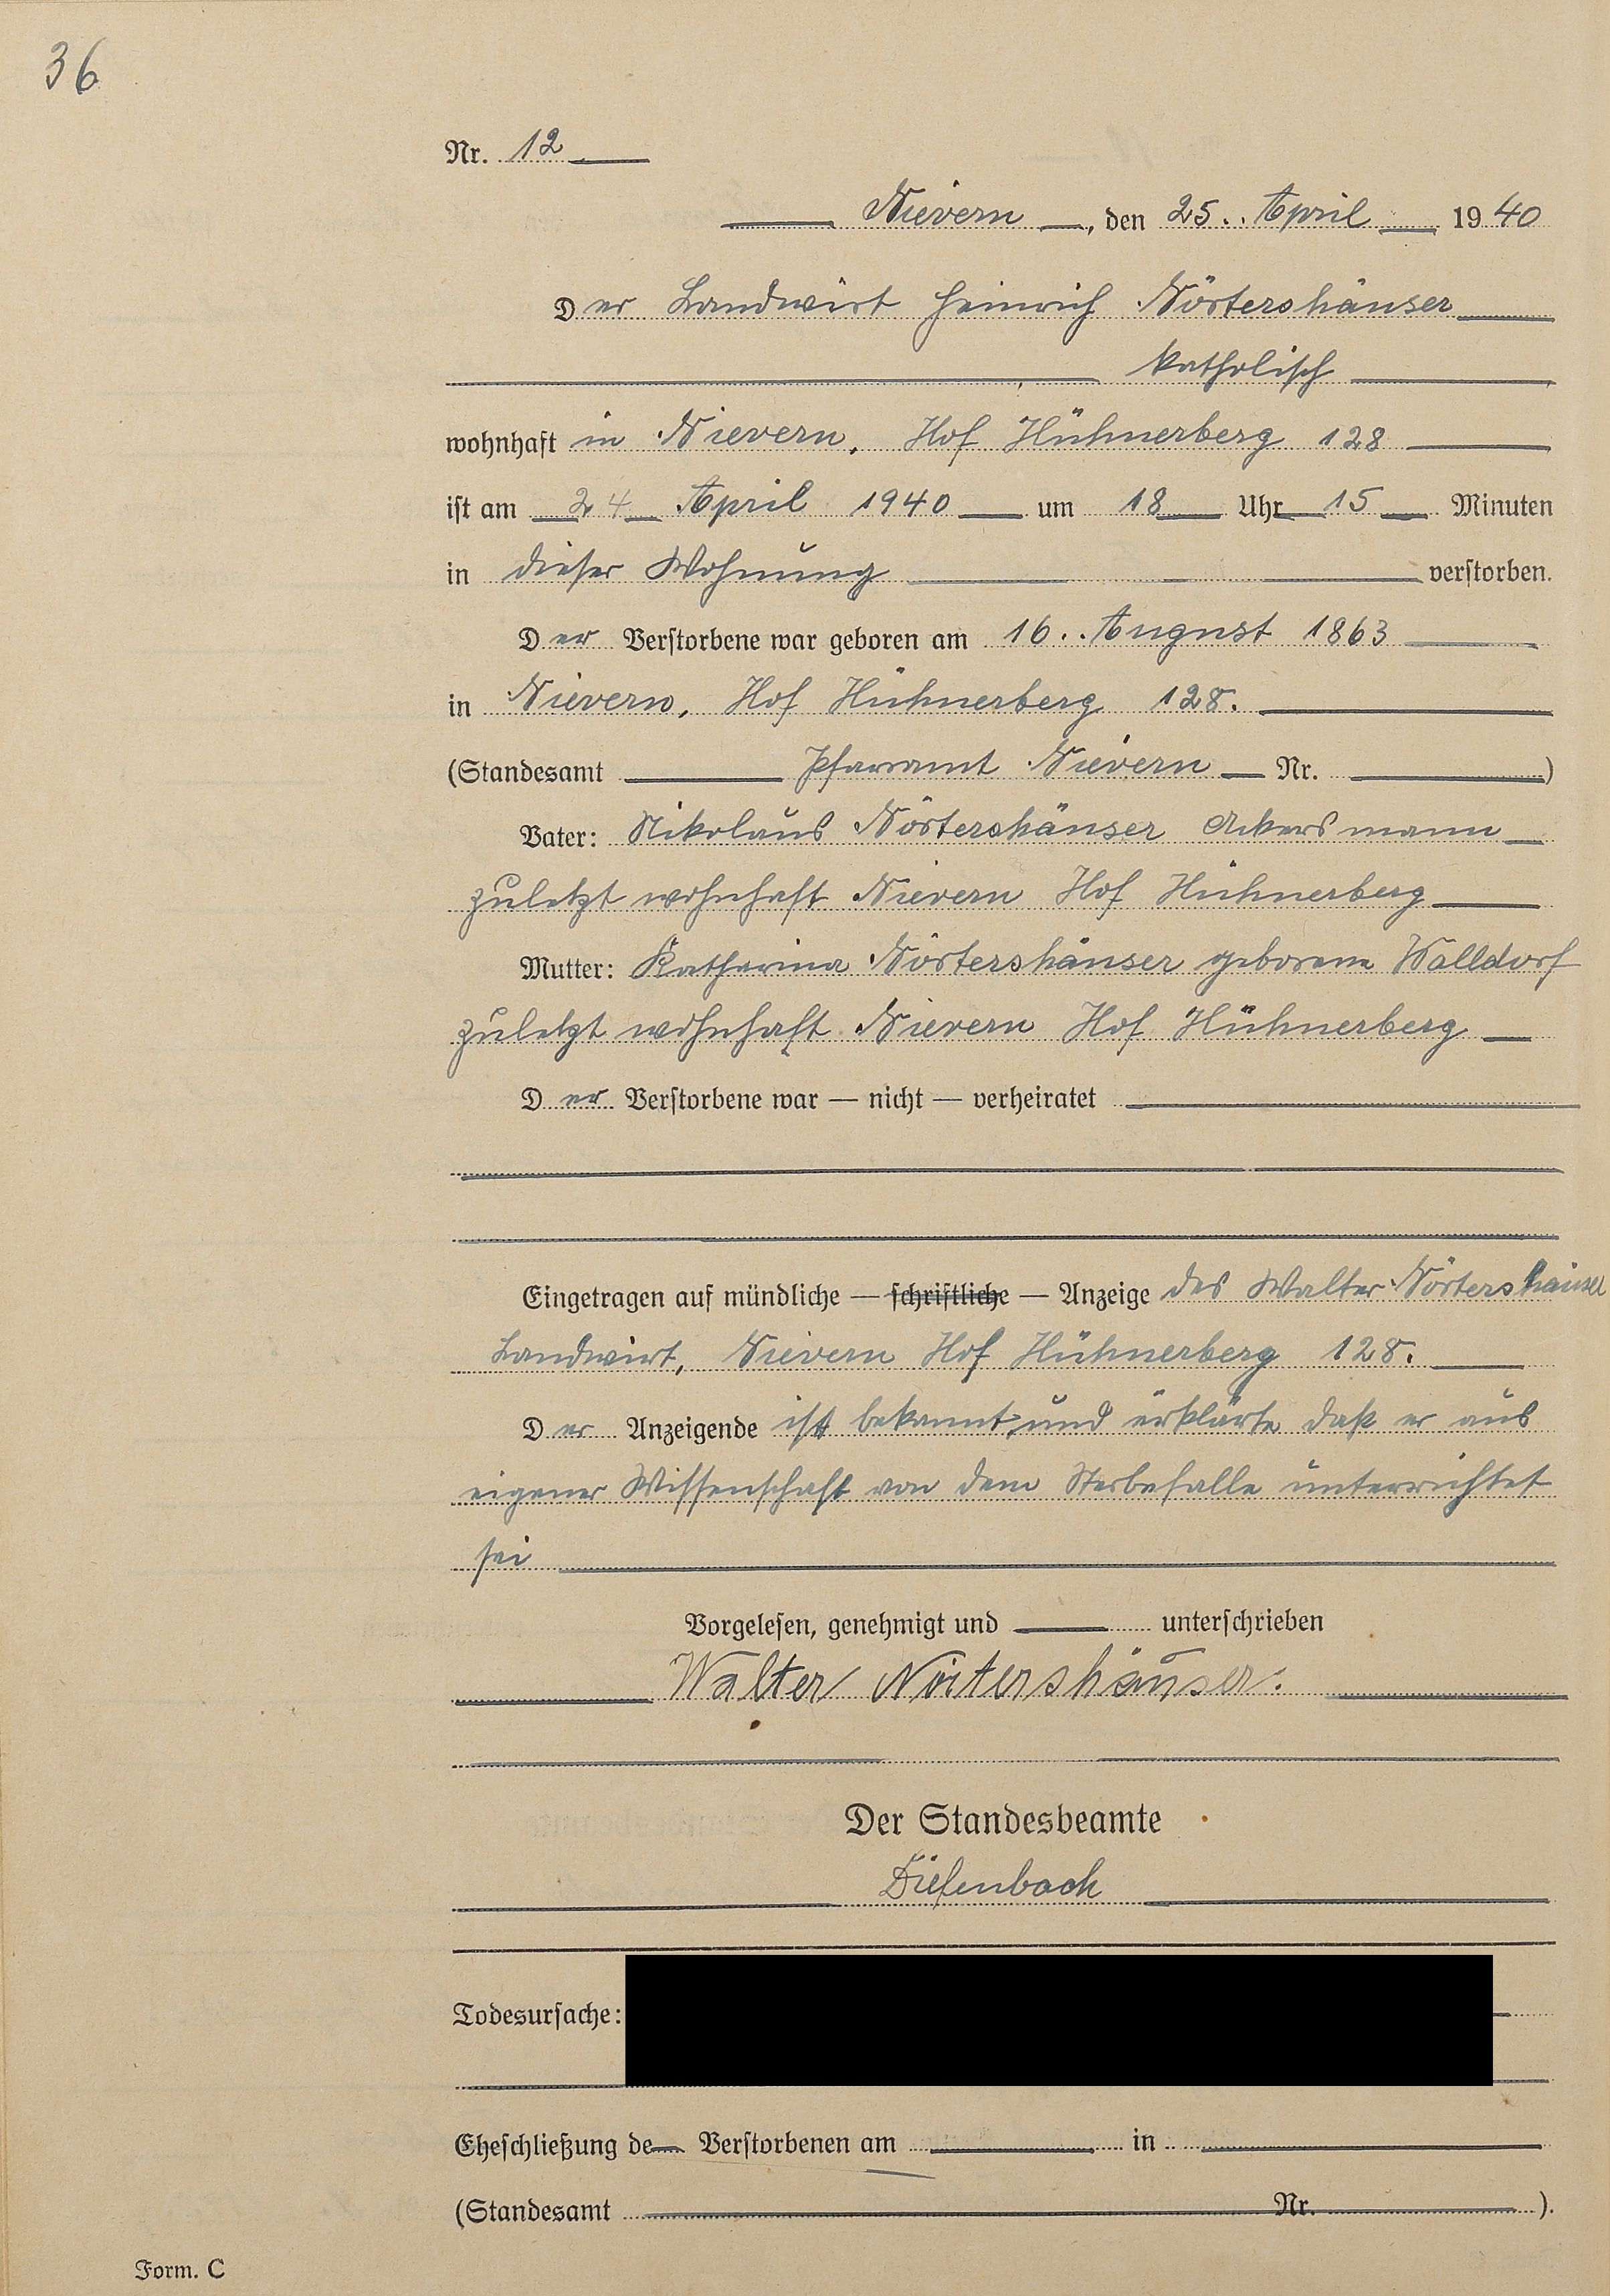 36
Nr. 12
Nievern, den 25. April 1940
Der Landwirt Heinrich Nörtershäuser
katholisch
wohnhaft in Nievern, Hof Hühnerberg 128
ist am 24 April 1940 um 18 Uhr 15 Minuten
in dieser Wohnung verstorben.
Der Verstorbene war geboren am 16. August 1863
in Nievern, Hof Hühnerberg 128.
(Standesamt Pfarramt Nievern Nr. )
Vater: Nikolaus Nörtershäuser Ackersmann
zuletzt wohnhaft Nievern Hof Hühnerberg
Mutter: Katharina Nörtershäuser geborene Walldorf
zuletzt wohnhaft Nievern Hof Hühnerberg
Der Verstorbene war — nicht — verheiratet
Eingetragen auf mündliche — schriftliche — Anzeige des Walter Nörtershäuser
Landwirt, Nievern Hof Hühnerberg 128.
Der Anzeigende ist bekannt und erklärte daß er aus
eigener Wissenschaft von dem Sterbefalle unterrichtet
sei
Vorgelesen, genehmigt und unterschrieben
Walter Nörtershäuser.
Der Standesbeamte
Diefenbach
Todesursache:
Eheschließung de Verstorbenen am in
(Standesamt Nr. ).
Form. C